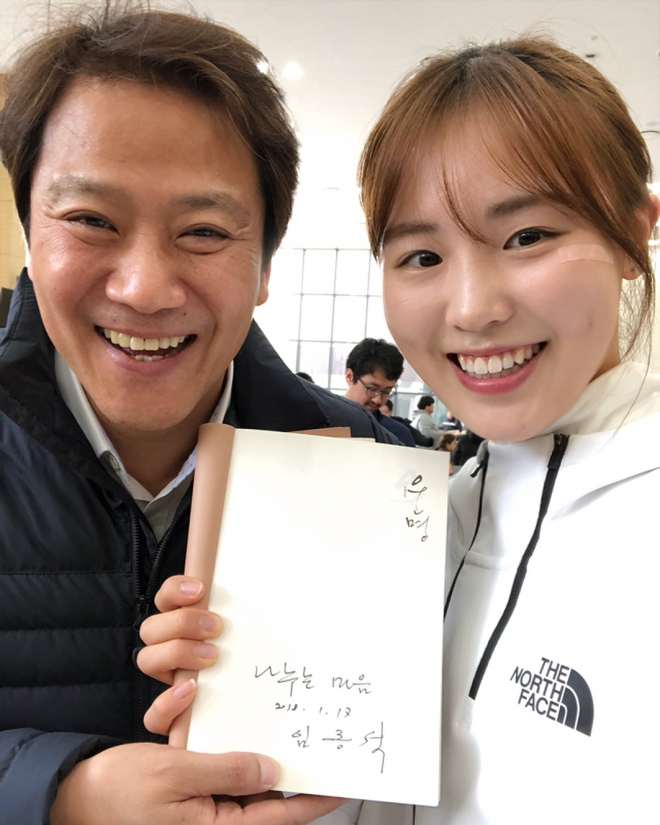 운명
나누는 마음
218. 1. 13
임종석
THE
NORTH
FACE